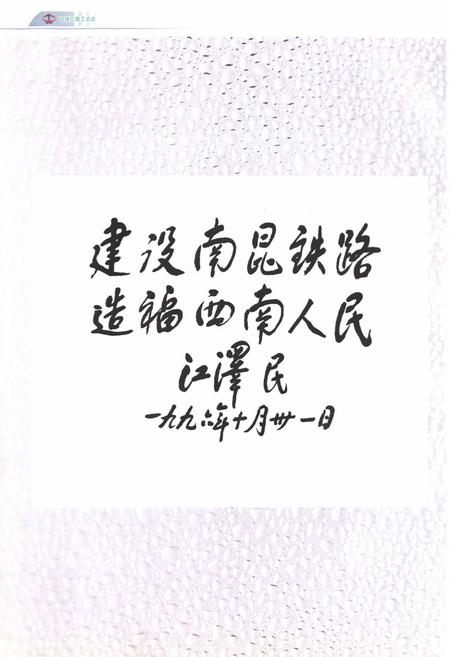 建设南昆铁路
造福西南人民
江澤民
一九九六年十月卅一日